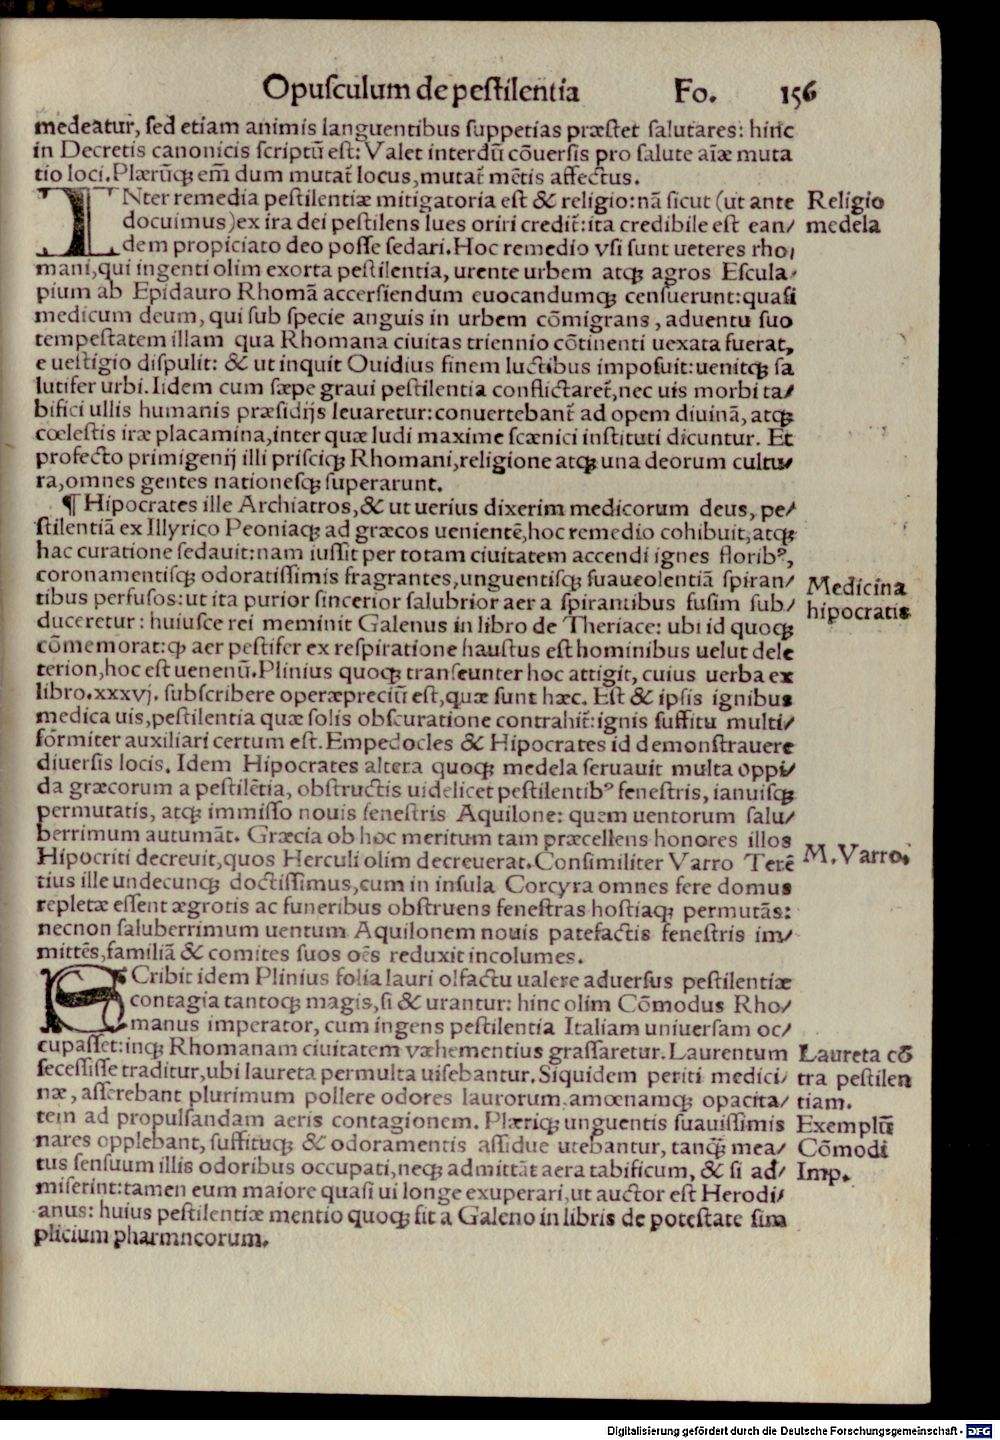 Opusculum de pestilentia Fo. 156
medeatur, sed etiam animis languentibus suppetias præstet salutares: hinc
in Decretis canonicis scriptū est: Valet interdū cōuersis pro salute aīæ muta
tio loci. Plærūqꝫ em̄ dum mutat̄ locus, mutat̄ mētis affectus.
INter remedia pestilentiæ mitigatoria est & religio: nā sicut (ut ante
docuimus) ex ira dei pestilens lues oriri credit̄: ita credibile est ean/
dem propiciato deo posse sedari. Hoc remedio vsi sunt ueteres rho/
mani, qui ingenti olim exorta pestilentia, urente urbem atqꝫ agros Escula/
pium ab Epidauro Rhomā accersiendum euocandumqꝫ censuerunt: quasi
medicum deum, qui sub specie anguis in urbem cōmigrans, aduentu suo
tempestatem illam qua Rhomana ciuitas triennio cōtinenti uexata fuerat,
e uestigio dispulit: & ut inquit Ouidius finem luctibus imposuit: uenitqꝫ sa
lutifer urbi. Iidem cum sæpe graui pestilentia conflictaret̄, nec uis morbi ta/
bifici ullis humanis præsidijs leuaretur: conuertebant̄ ad opem diuinā, atqꝫ
cœlestis iræ placamina, inter quæ ludi maxime scænici instituti dicuntur. Et
profecto primigenij illi prisciqꝫ Rhomani, religione atqꝫ una deorum cultu/
ra, omnes gentes nationesqꝫ superarunt.
¶ Hipocrates ille Archiatros, & ut uerius dixerim medicorum deus, pe/
stilentiā ex Illyrico Peoniaqꝫ ad græcos uenientē, hoc remedio cohibuit, atqꝫ
hac curatione sedauit: nam iussit per totam ciuitatem accendi ignes floribꝰ,
coronamentisqꝫ odoratissimis fragrantes, unguentisqꝫ suaueolentiā spiran/
tibus perfusos: ut ita purior sincerior salubrior aer a spirantibus fusim sub/
duceretur: huiusce rei meminit Galenus in libro de Theriace: ubi id quoqꝫ
cōmemorat: ꝙ aer pestifer ex respiratione haustus est hominibus uelut dele
terion, hoc est uenenū. Plinius quoqꝫ transeunter hoc attigit, cuius uerba ex
libro. xxxvj. subscribere operæpreciū est, quæ sunt hæc. Est & ipsis ignibus
medica uis, pestilentia quæ solis obscuratione contrahit̄: ignis suffitu multi/
formiter auxiliari certum est. Empedocles & Hipocrates id demonstrauere
diuersis locis. Idem Hipocrates altera quoqꝫ medela seruauit multa oppi/
da græcorum a pestilētia, obstructis uidelicet pestilentibꝰ fenestris, ianuisqꝫ
permutatis, atqꝫ immisso nouis fenestris Aquilone: quem uentorum salu/
berrimum autumāt. Græcia ob hoc meritum tam præcellens honores illos
Hipocriti decreuit, quos Herculi olim decreuerat. Consimiliter Varro Terē
tius ille undecunqꝫ doctissimus, cum in insula Corcyra omnes fere domus
repletæ essent ægrotis ac funeribus obstruens fenestras hostiaqꝫ permutās:
necnon saluberrimum uentum Aquilonem nouis patefactis fenestris im/
mittēs, familiā & comites suos oēs reduxit incolumes.
SCribit idem Plinius folia lauri olfactu ualere aduersus pestilentiæ
contagia tantoqꝫ magis, si & urantur: hinc olim Cōmodus Rho/
manus imperator, cum ingens pestilentia Italiam uniuersam oc/
cupasset: inqꝫ Rhomanam ciuitatem væhementius grassaretur. Laurentum
secessisse traditur, ubi laureta permulta uisebantur. Siquidem periti medici/
næ, asserebant plurimum pollere odores laurorum, amœnamqꝫ opacita/
tem ad propulsandam aeris contagionem. Plæriqꝫ unguentis suauissimis
nares opplebant, suffituqꝫ & odoramentis assidue utebantur, tanqꝫ̄ mea/
tus sensuum illis odoribus occupati, neqꝫ admittāt aera tabificum, & si ad/
miserint: tamen eum maiore quasi ui longe exuperari, ut auctor est Herodi/
anus: huius pestilentiæ mentio quoqꝫ fit a Galeno in libris de potestate sim
plicium pharmncorum.
Religio
medela
Medicina
hipocratis
M. Varro.
Laureta cō
tra pestilen
tiam.
Exemplū
Cōmodi
Imp.
Digitalisierung gefördert durch die Deutsche Forschungsgemeinschaft - DFG